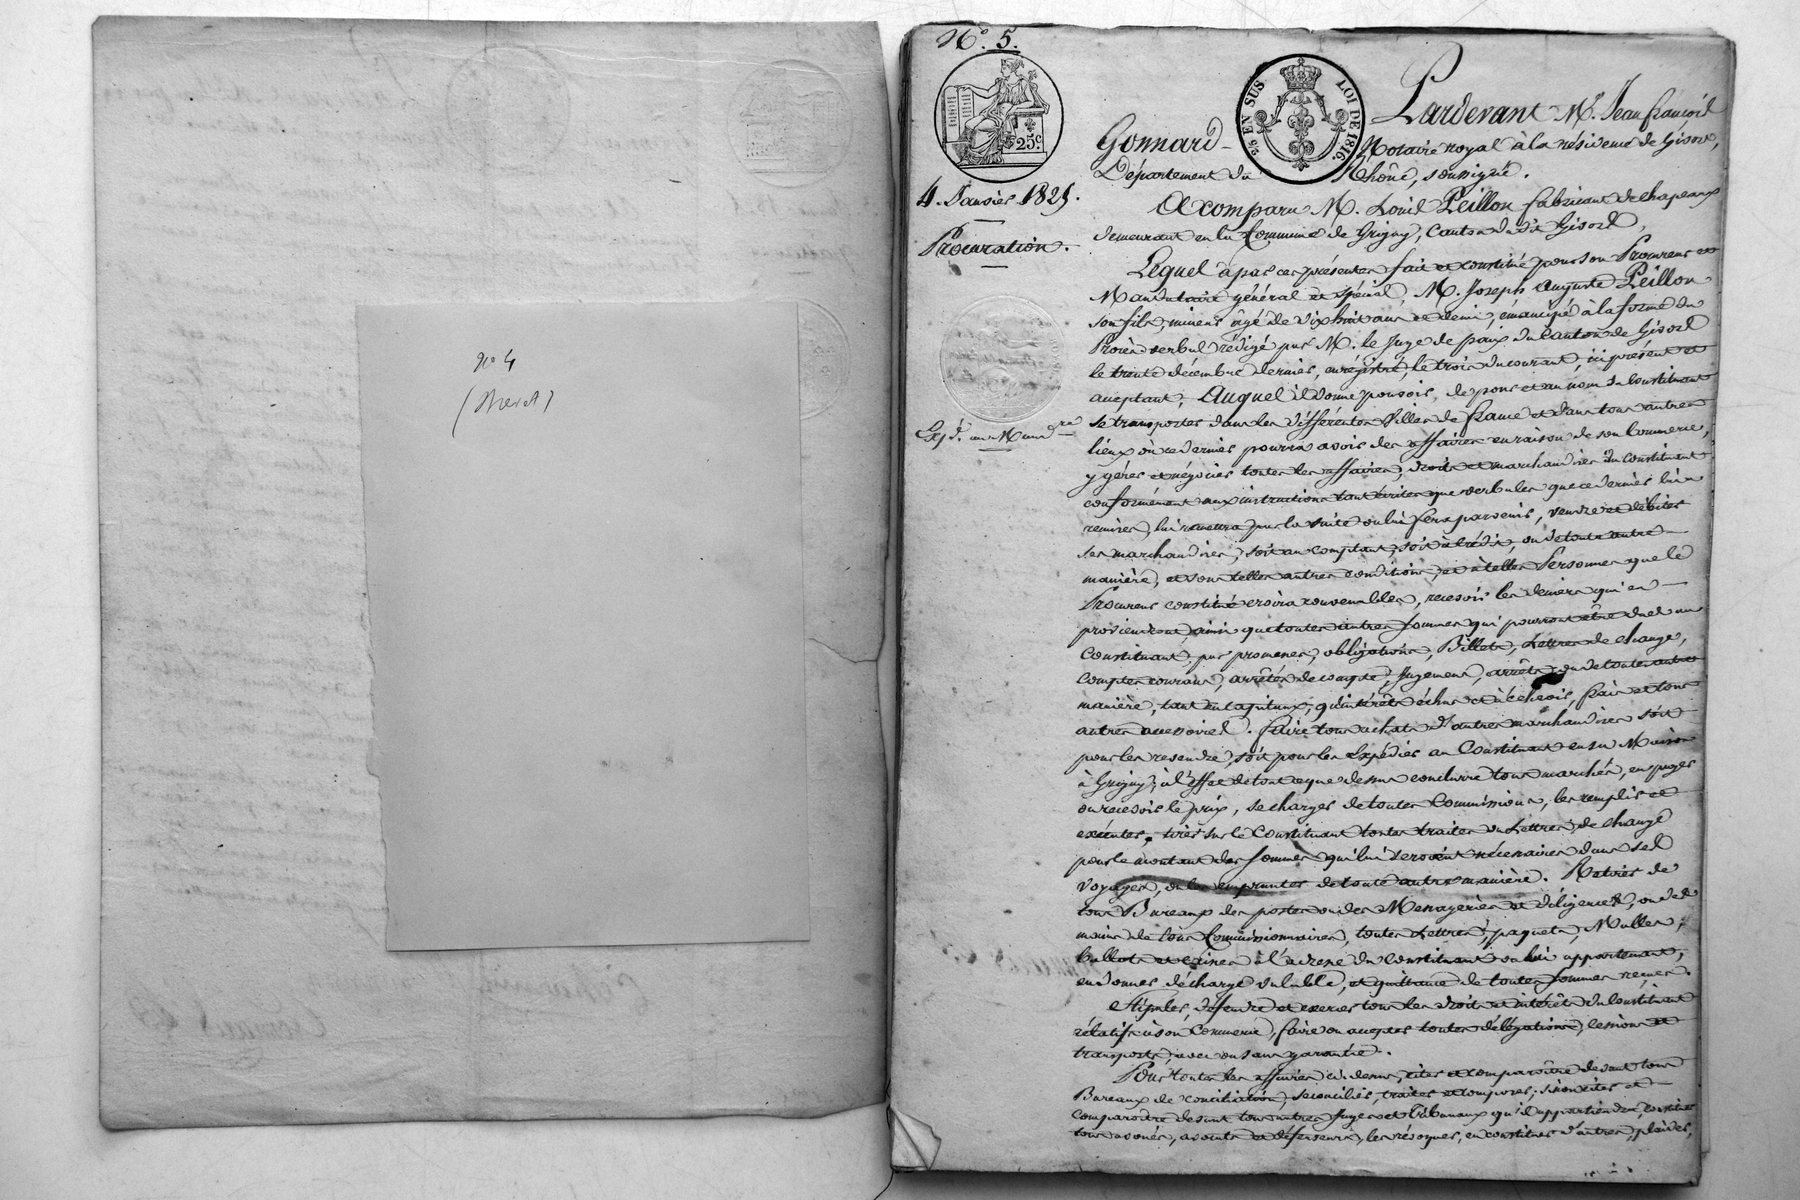 nº 4
Nº. 5.
25 EN SUS LOI DE 1816.
25c.
4. Janvier 1825.
Procuration.
Exp.
Pardevant M.e Jean françois
Gonnard Notaire royal à la résidence de Givors,
Département du Rhône, soussigné.
A comparu M. Louis Peillon fabricant de chapeaux
demeurant en la Commune de Grigny, Canton dudit Givors,
Lequel a par ces présentes fait et constitué pour son Procureur et
Mandataire général et spécial, M. Joseph Auguste Peillon
son fils, mineur âgé de dix huit ans et demi, émancipé à la forme du
Procès verbal rédigé par M. le Juge de paix du Canton de Givors
le trente décembre dernier, enregistré, le trois du courant, ici présent et
acceptant, Auquel il donne pouvoir, de pour et au nom du Constituant
se transporter dans les différentes Villes de france et dans tous autres
lieux où ce dernier pourra avoir des affaires en raison de son Commerce,
y gérer et négocier toutes les affaires, droits et marchandises du Constituant
conformément aux instructions tant écrites que verbales que ce dernier lui a
remises, lui remettra par la suite ou lui fera parvenir, vendre et débiter
ses marchandises, soit au comptant, soit à crédit, ou de toute autre
manière, et sous telles autres conditions, et à telles Personnes que le
Procureur constitué croira convenables, recevoir les deniers qui en
proviendront ainsi que toutes autres sommes qui pourront être dues au
Constituant, par promesses, obligations, Billets, Lettres de change,
Comptes courans, arrêtés de compte, Jugemens, arrêts, ou de toute autre
manière, tant en capitaux, qu'intérêts échus et à échoir, frais et tous
autres accessoires. faire tous achats d'autres marchandises soit
pour les revendre, soit pour les Expédier au Constituant en sa Maison
à Grigny; à l'effet de tout ce que dessus conclure tous marchés, en payer
ou recevoir le prix, se charger de toutes Commissions, les remplir et
exécuter, tirer sur le Constituant toutes traites ou Lettres de change
pour le montant des sommes qui lui seroient nécessaires dans ses
voyages, ou les emprunter de toute autre manière. Retirer de
tous Bureaux des postes ou des Messageries et diligences, ou des
mains de tous Commissionnaires, toutes Lettres, paquets, Malles,
ballots et caisses à l'adresse du constituant ou lui appartenant,
en donner décharge valable, et quittance de toutes sommes reçues.
Stipuler, défendre et exercer tous les droits et intérêts du Constituant
rélatifs à son Commerce, faire ou accepter toutes délégations, cessions et
transports, avec ou sans garantie.
Pour toutes les affaires ci dessus, citer et comparoître devant tous
Bureaux de conciliation, se concilier, traiter et composer; sinon citer et
comparoître devant tous autres Juges et tribunaux qu'il appartiendra, constituer
tous avoués, avocats et défenseurs, les révoquer, en constituer d'autres, plaider,